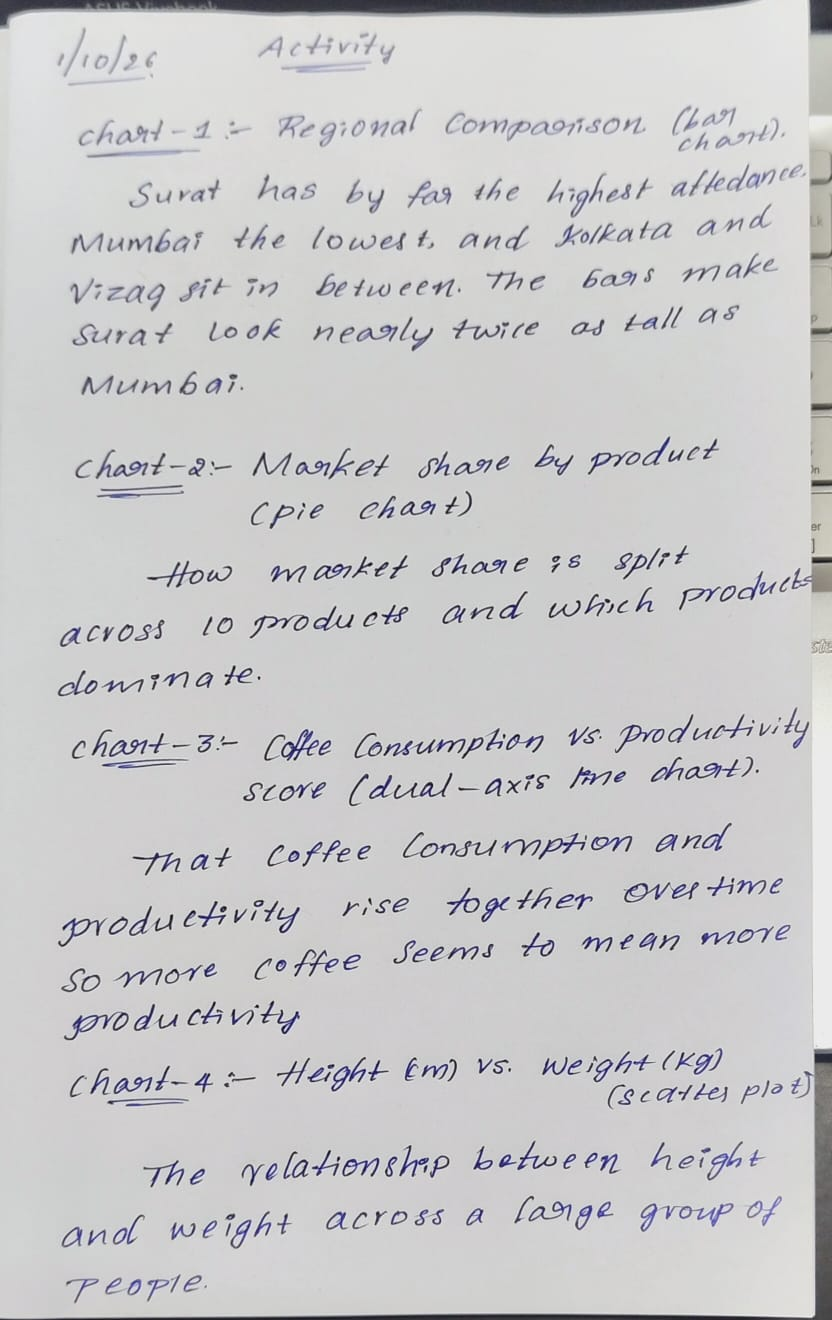 1/10/26 Activity
chart-1 :- Regional Comparison (bar
chart).
Surat has by far the highest attedance.
Mumbai the lowest, and Kolkata and
Vizag sit in between. The bars make
Surat look nearly twice as tall as
Mumbai.
Chart-2:- Market share by product
(pie chart)
How market share is split
across 10 products and which products
dominate.
chart-3:- Coffee Consumption vs. productivity
score (dual-axis line chart).
That Coffee Consumption and
productivity rise together over time
So more coffee seems to mean more
productivity
Chart-4 :- Height (cm) vs. weight (kg)
(scatter plot)
The relationship between height
and weight across a large group of
people.